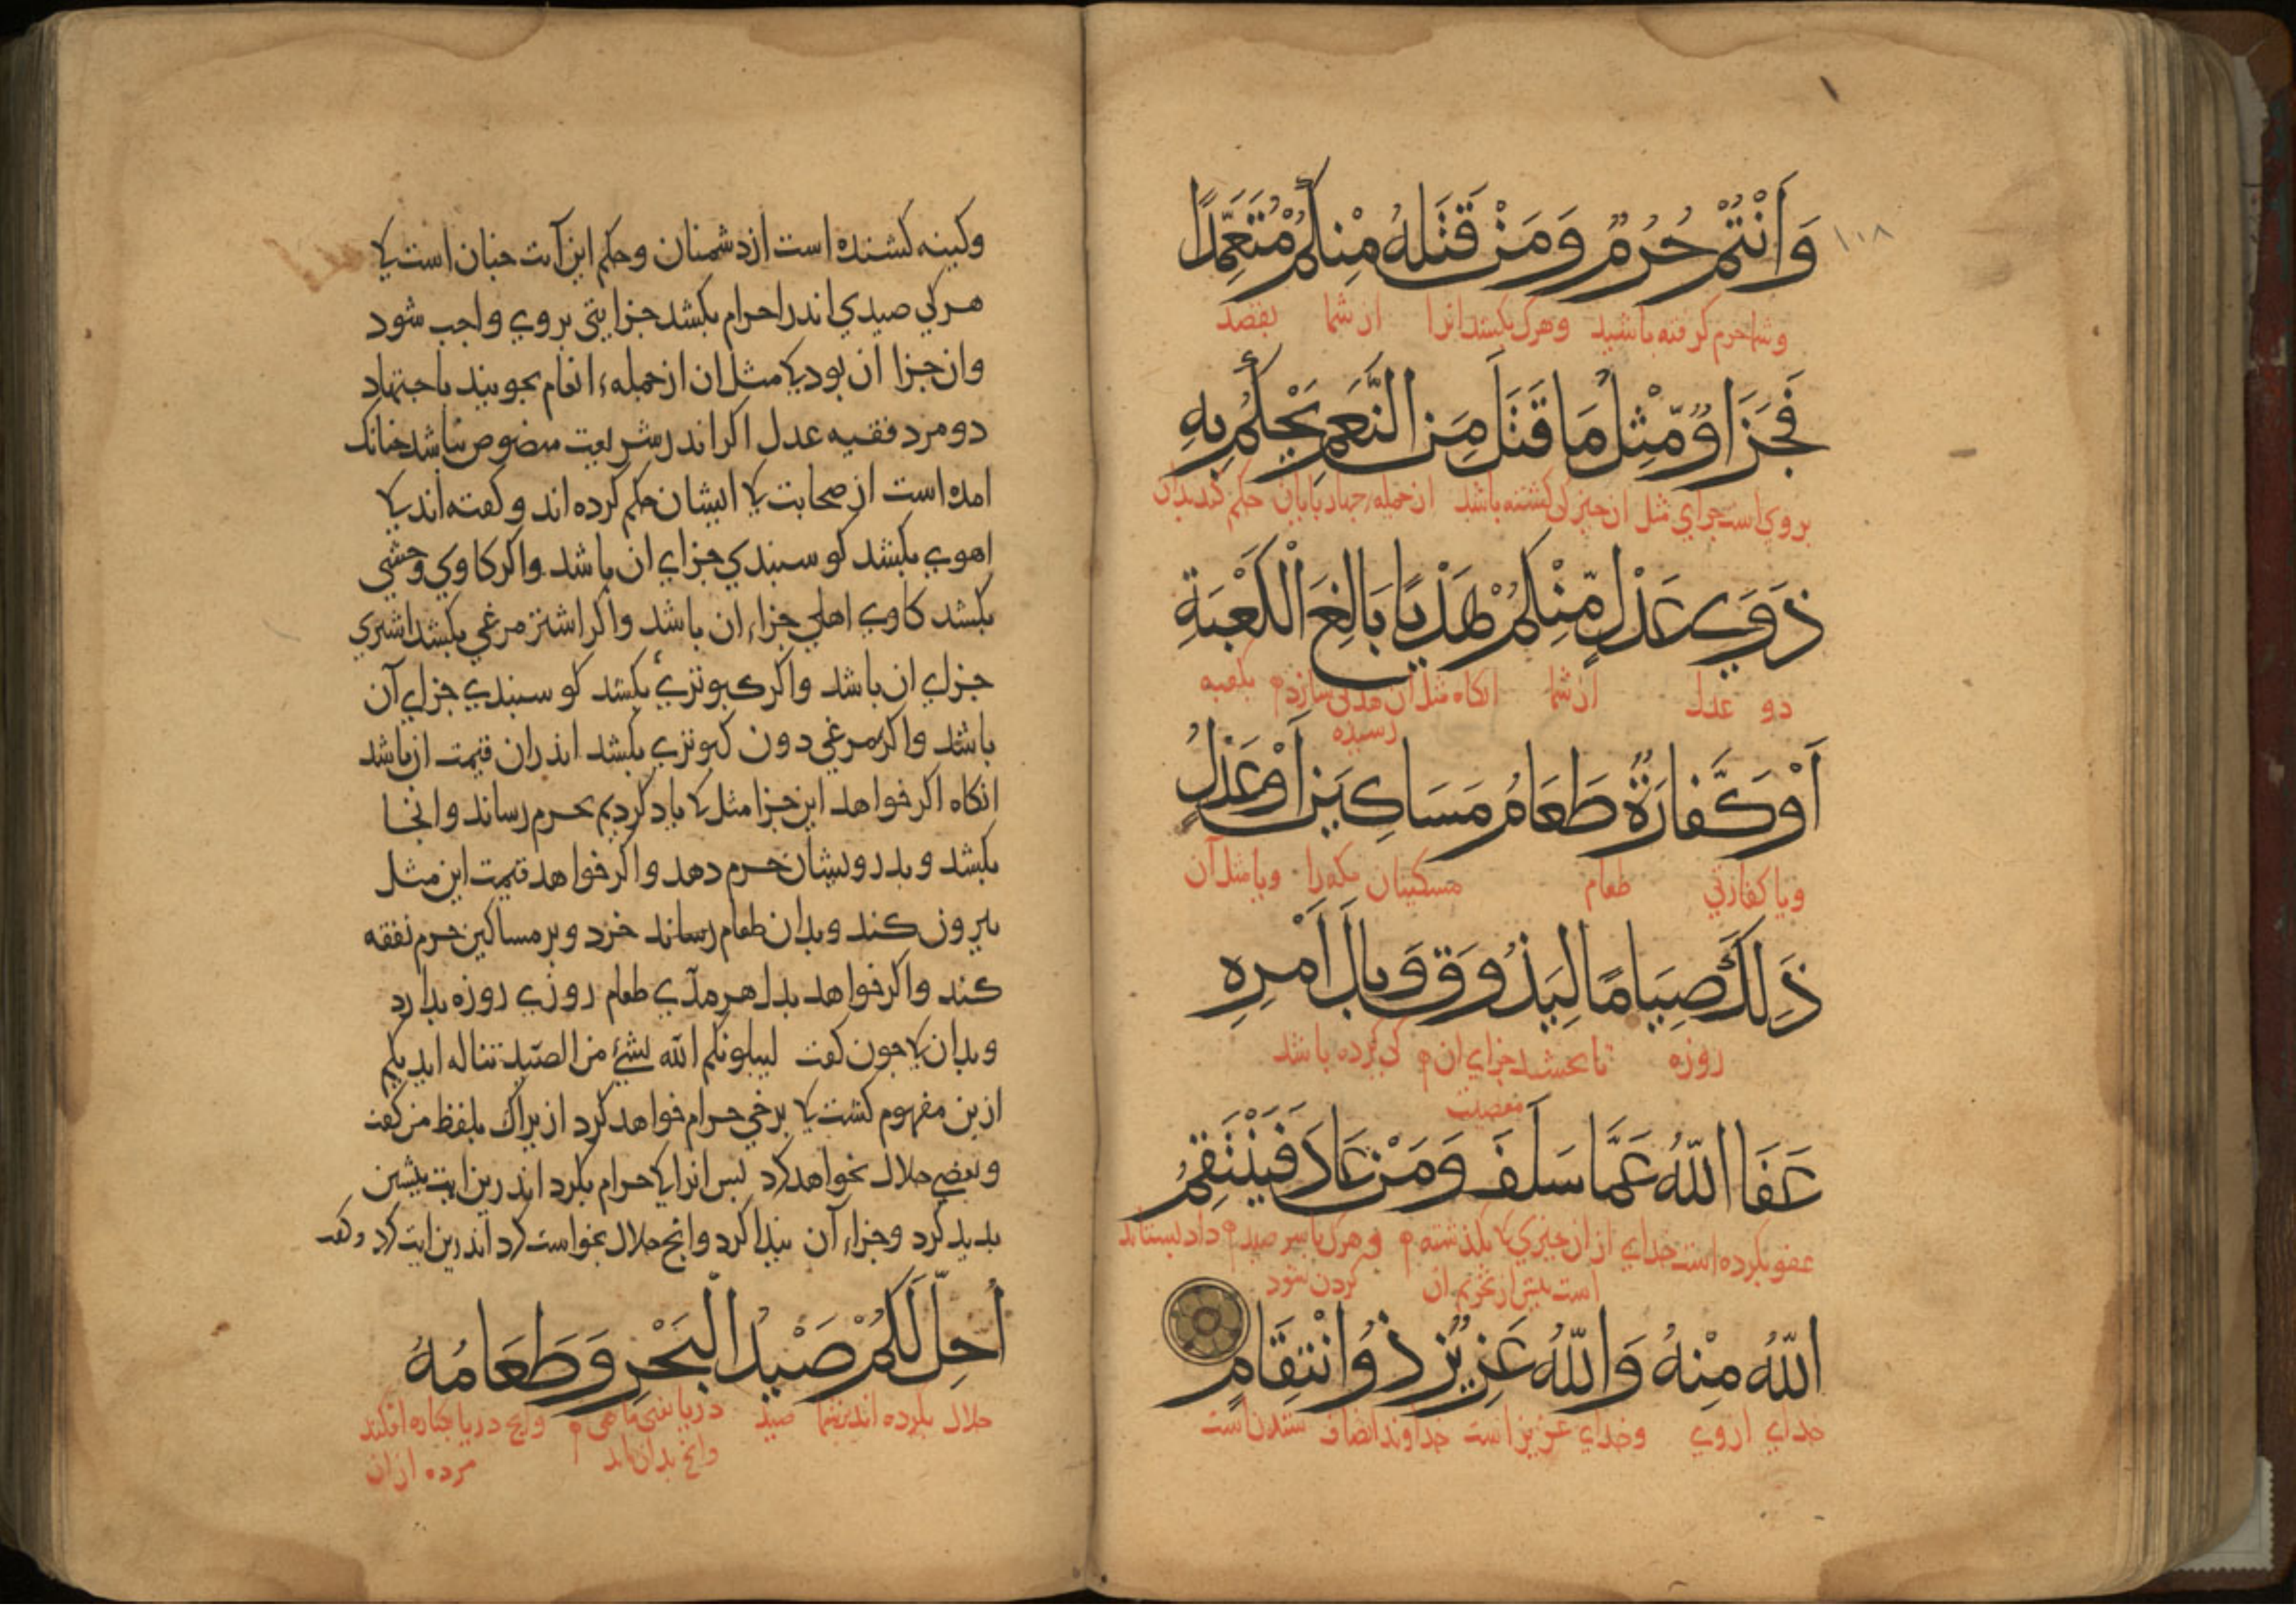 ١٠٨
وَاَنْتُمْ حُرُمٌ وَمَنْ قَتَلَهُ مِنْكُمْ مُتَعَمِّدًا
وشما حرم گرفته باشید وهرک بکشد انرا از شما بقصد
فَجَزَاؤٌ مِّثْلُ مَا قَتَلَ مِنَ النَّعَمِ يَحْكُمُ بِهِ
بروی است جزای مثل ان چیز کی کشته باشد از جمله چهار بایان حکم کند بدان
ذَوَي عَدْلٍ مِّنْكُمْ هَدْيًا بَالِغَ الْكَعْبَةِ
دو عدل از شما انکاه مثل ان هدی سازد بکعبه
رسیده
اَوْ كَفَّارَةٌ طَعَامُ مَسَاكِينَ اَوْ عَدْلُ
ویا کفارتی طعام مسکینان مکه را ویا مثل آن
ذَلِكَ صِيَامًا لِيَذُوقَ وَبَالَ اَمْرِهِ
روزه تا بچشد جزای ان کی کرده باشد
معصیت
عَفَا اللّٰهُ عَمَّا سَلَفَ وَمَنْ عَادَ فَيَنْتَقِمُ
عفو بکرده است خدای از ان چیزی کا بگذشته و هرک با سر صید داد بستاند
است بیش از تحریم ان کردن شود
اللّٰهُ مِنْهُ وَاللّٰهُ عَزِيزٌ ذُو انْتِقَامٍ
خدای از وی وخدای عزیز است خداوند انصاف ستدن است
وکینه کشنده است از دشمنان وحکم این آیت چنان است کا
هرکی صیدی اندر احرام بکشد جزایی بروی واجب شود
وان جزا ان بود کا مثل ان از جمله انعام بجویند باجتهاد
دو مرد فقیه عدل اکر اندر شریعت منصوص نباشد چنانک
امده است از صحابت کا ایشان حکم کرده اند وکفته اند کا
اهوی بکشد کوسبندی جزای ان باشد واکر کاوی وحشی
بکشد کاوی اهلی جزاء ان باشد واکر اشتر مرغی بکشد اشتری
جزای ان باشد واکر کبوتری بکشد کوسبندی جزای آن
باشد واکر مرغی دون کبوتری بکشد اندران قیمت ان باشد
انکاه اکر خواهد این جزا مثل کا یاد کردیم بحرم رساند وانجا
بکشد وبدرویشان حرم دهد واکر خواهد قیمت این مثل
بیرون کند وبدان طعام رساند خرد وبر مساکین حرم نفقه
کند واکر خواهد بدل هر مدی طعام روزی روزه بدارد
وبدان کا چون کفت لیبلونکم الله بشئ من الصید تناله ایدیکم
ازین مفهوم کشت کا برخی حرام خواهد کرد ازیراک بلفظ من کفت
وبعضی حلال بخواهد کرد بس انرا کا حرام بکرد اندرین ایت بیشین
بدید کرد وجزاء آن بیدا کرد وانج حلال بخواست کرد اندرین ایت کرد وکفت
أُحِلَّ لَكُمْ صَيْدُ الْبَحْرِ وَطَعَامُهُ
حلال بکرده اند شما صید دریا یعنی ماهی وانج دریا بکناره افکند
وانج بدان ماند مرده از ان